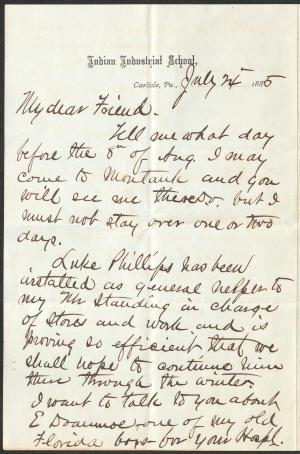 Indian Industrial School,
Carlisle, Pa., July 24" 1885
My dear Friend.
Tell me what day
before the 8" of Aug. I may
come to Montauk and you
will see me there &c. but I
must not stay over one or two
days.
Luke Phillips has been
installed as general helper to
my Mr Standing in charge
of stores and work and is
proving so efficient that we
shall hope to continue him
there through the winter.
I want to talk to you about
E one of my old
Florida boys for your